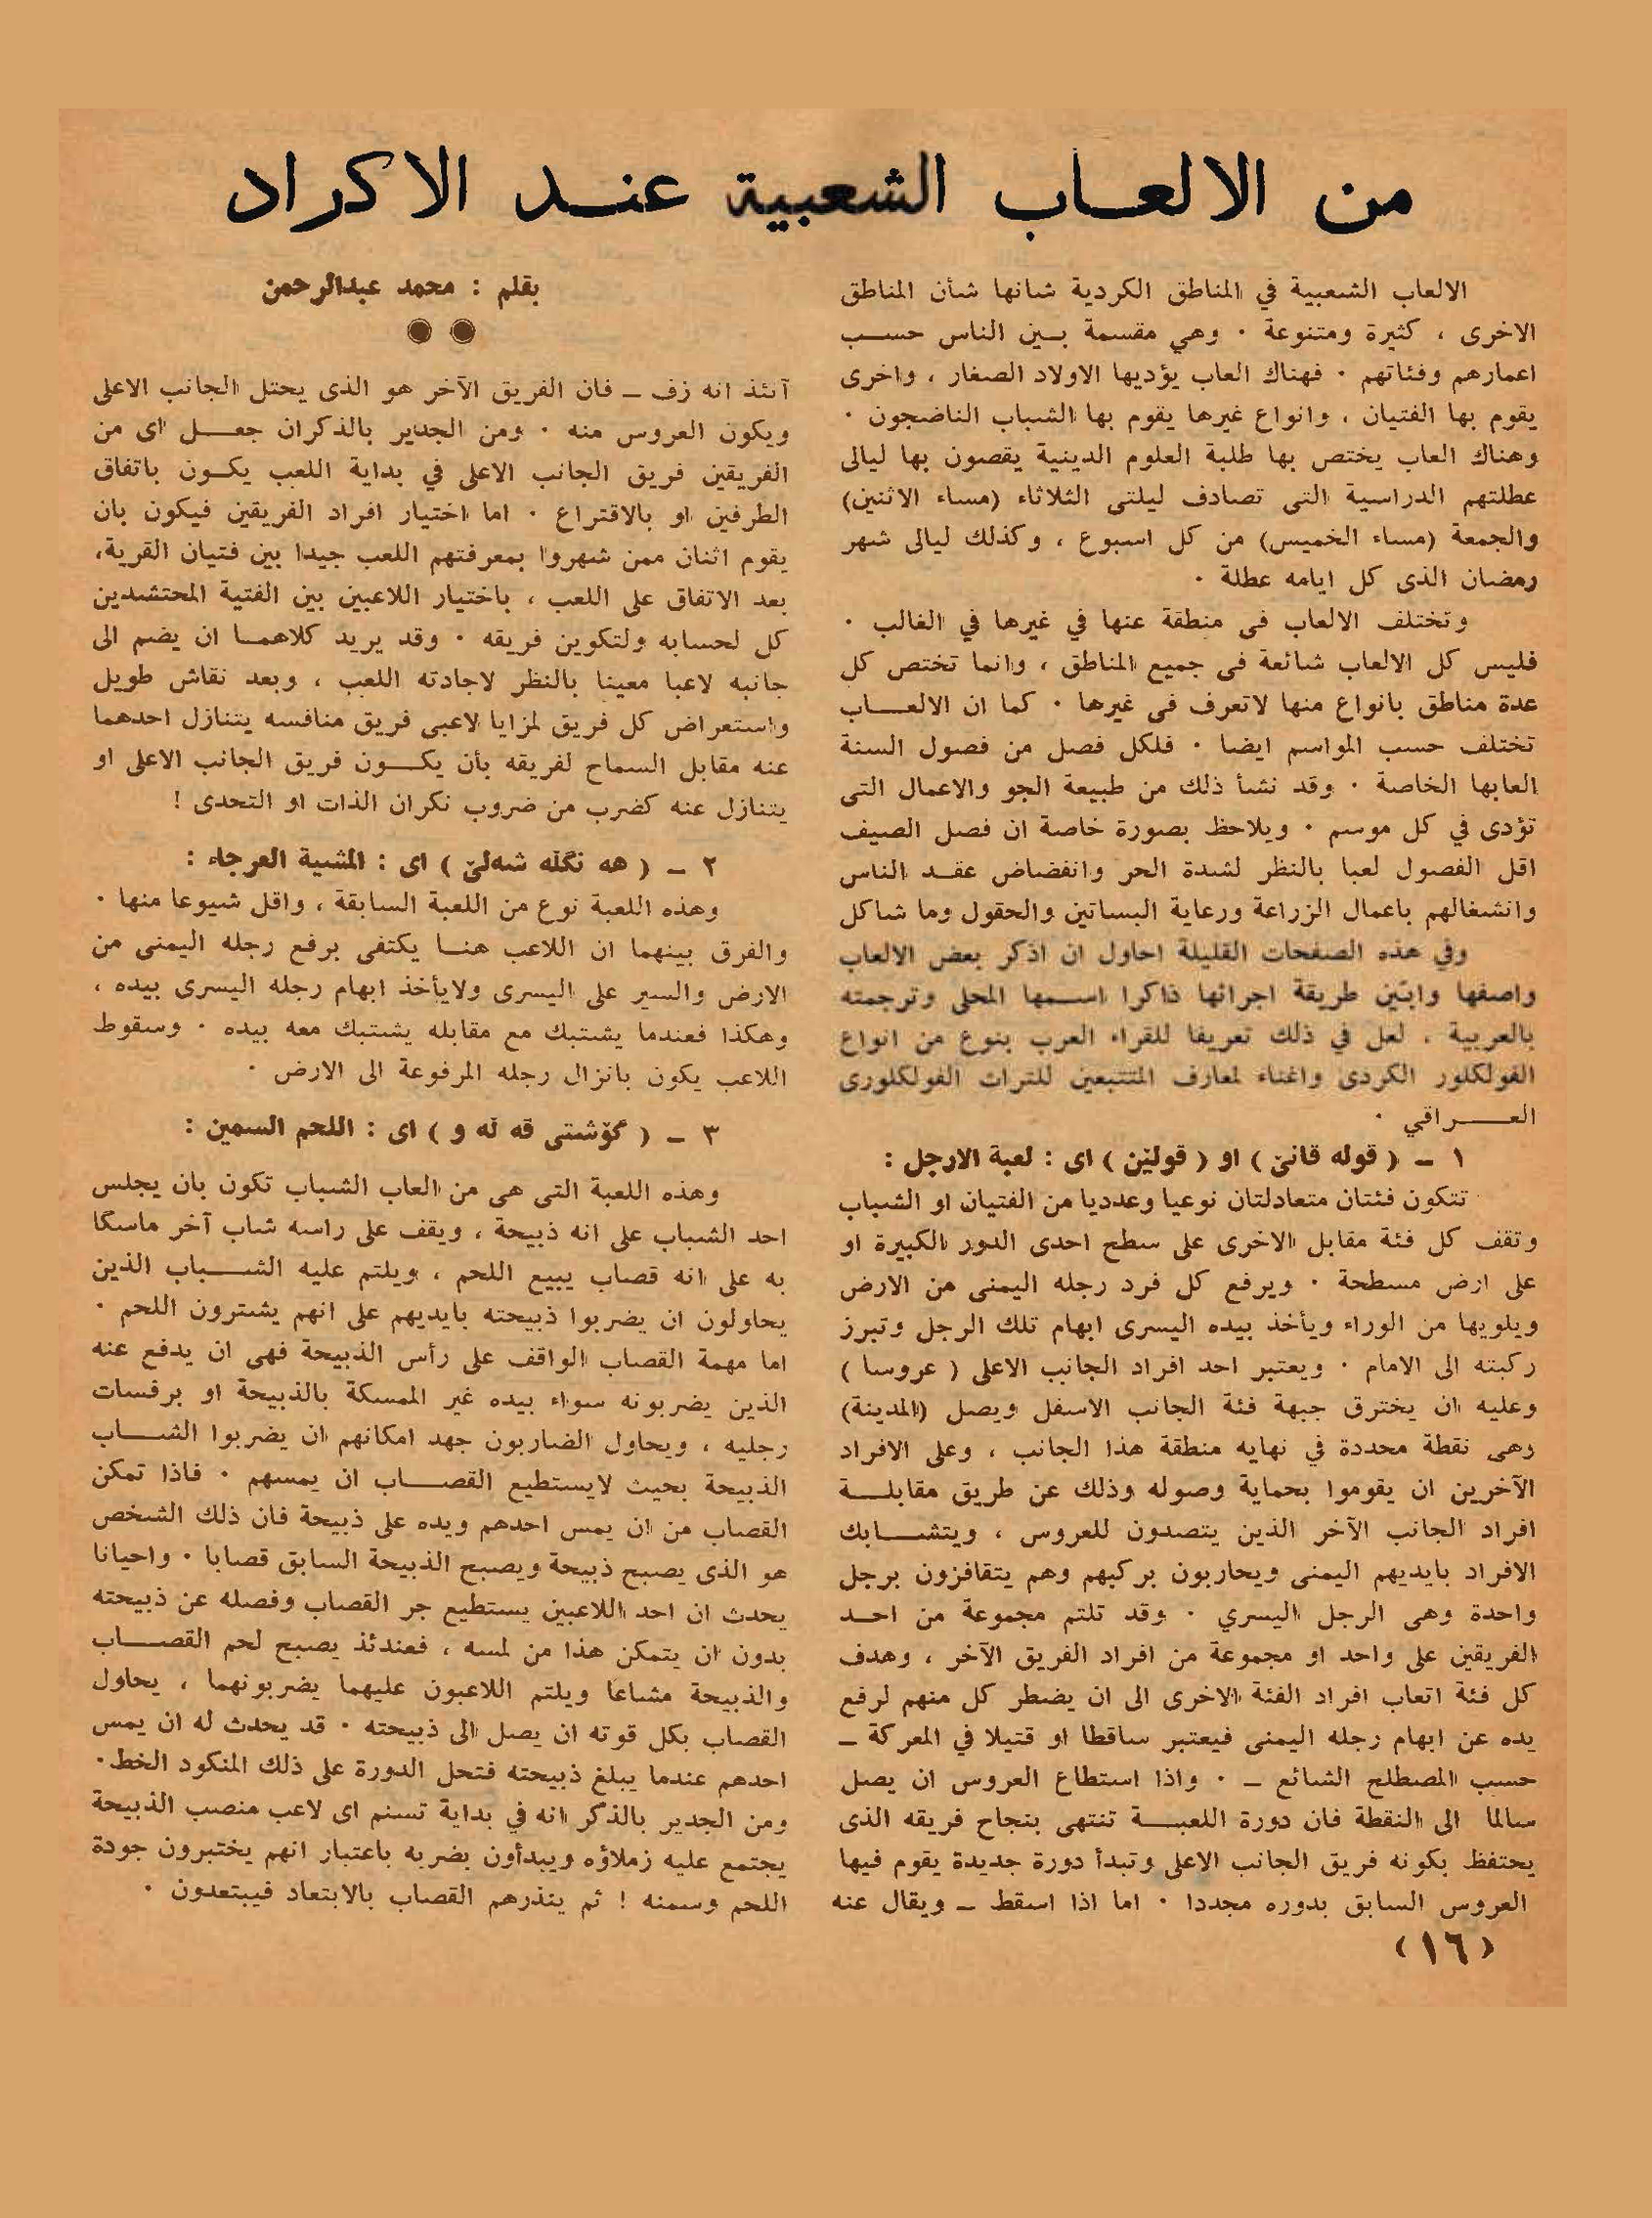 من الالعـاب الشعبية عنـد الاكراد
الالعاب الشعبية في المناطق الكردية شانها شأن المناطق
الاخرى ، كثيرة ومتنوعة ٠ وهي مقسمة بـين الناس حسـب
اعمارهم وفئاتهم ٠ فهناك العاب يؤديها الاولاد الصغار ، واخرى
يقوم بها الفتيان ، وانواع غيرها يقوم بها الشباب الناضجون ٠
وهناك العاب يختص بها طلبة العلوم الدينية يقصون بها ليالى
عطلتهم الدراسية التى تصادف ليلتى الثلاثاء (مساء الاثنين)
والجمعة (مساء الخميس) من كل اسبوع ، وكذلك ليالى شهر
رمضان الذى كل ايامه عطلة ٠
وتختلف الالعاب فى منطقة عنها في غيرها في الغالب ٠
فليس كل الالعاب شائعة فى جميع المناطق ، وانما تختص كل
عدة مناطق بانواع منها لاتعرف فى غيرها ٠ كما ان الالعـــاب
تختلف حسب المواسم ايضا ٠ فلكل فصل من فصول السنة
العابها الخاصة ٠ وقد نشأ ذلك من طبيعة الجو والاعمال التى
تؤدى في كل موسم ٠ ويلاحظ بصورة خاصة ان فصل الصيف
اقل الفصول لعبا بالنظر لشدة الحر وانفضاض عقـد الناس
وانشغالهم باعمال الزراعة ورعاية البساتين والحقول وما شاكل
وفي هذه الصفحات القليلة احاول ان اذكر بعض الالعاب
واصفها وابيّن طريقة اجرائها ذاكرا اسـمها المحلى وترجمته
بالعربية ، لعل في ذلك تعريفا للقراء العرب بنوع من انواع
الفولكلور الكردى واغناء لمعارف المتتبعين للتراث الفولكلورى
العـــراقي ٠
١ ــ ( قوله قانێ ) او ( قولێن ) اى : لعبة الارجل :
تتكون فئتان متعادلتان نوعيا وعدديا من الفتيان او الشباب
وتقف كل فئة مقابل الاخرى على سطح احدى الدور الكبيرة او
على ارض مسطحة ٠ ويرفع كل فرد رجله اليمنى من الارض
ويلويها من الوراء ويأخذ بيده اليسرى ابهام تلك الرجل وتبرز
ركبته الى الامام ٠ ويعتبر احد افراد الجانب الاعلى ( عروسا )
وعليه ان يخترق جبهة فئة الجانب الاسفل ويصل (المدينة)
وهى نقطة محددة في نهايه منطقة هذا الجانب ، وعلى الافراد
الآخرين ان يقوموا بحماية وصوله وذلك عن طريق مقابلــة
افراد الجانب الآخر الذين يتصدون للعروس ، ويتشــابك
الافراد بايديهم اليمنى ويحاربون بركبهم وهم يتقافزون برجل
واحدة وهى الرجل اليسري ٠ وقد تلتم مجموعة من احـد
الفريقين على واحد او مجموعة من افراد الفريق الآخر ، وهدف
كل فئة اتعاب افراد الفئة الاخرى الى ان يضطر كل منهم لرفع
يده عن ابهام رجله اليمنى فيعتبر ساقطا او قتيلا في المعركة ــ
حسب المصطلح الشائع ــ ٠ واذا استطاع العروس ان يصل
سالما الى النقطة فان دورة اللعبـــة تنتهى بنجاح فريقه الذى
يحتفظ بكونه فريق الجانب الاعلى وتبدأ دورة جديدة يقوم فيها
العروس السابق بدوره مجددا ٠ اما اذا اسقط ــ ويقال عنه
(١٦)
بقلم : محمد عبدالرحمن
آنئذ انه زف ــ فان الفريق الآخر هو الذى يحتل الجانب الاعلى
ويكون العروس منه ٠ ومن الجدير بالذكران جعــل اى من
الفريقين فريق الجانب الاعلى في بداية اللعب يكـون باتفاق
الطرفين او بالاقتراع ٠ اما اختيار افراد الفريقين فيكون بان
يقوم اثنان ممن شهروا بمعرفتهم اللعب جيدا بين فتيان القرية،
بعد الاتفاق على اللعب ، باختيار اللاعبين بين الفتية المحتشدين
كل لحسابه ولتكوين فريقه ٠ وقد يريد كلاهمـا ان يضم الى
جانبه لاعبا معينا بالنظر لاجادته اللعب ، وبعد نقاش طويل
واستعراض كل فريق لمزايا لاعبى فريق منافسه يتنازل احدهما
عنه مقابل السماح لفريقه بأن يكـــون فريق الجانب الاعلى او
يتنازل عنه كضرب من ضروب نكران الذات او التحدى !
٢ ــ ( هه نگله شەلێ ) اى : المشية العرجاء :
وهذه اللعبة نوع من اللعبة السابقة ، واقل شيوعا منها ٠
والفرق بينهما ان اللاعب هنـا يكتفى برفع رجله اليمنى من
الارض والسير على اليسرى ولايأخذ ابهام رجله اليسرى بيده ،
وهكذا فعندما يشتبك مع مقابله يشتبك معه بيده ٠ وسقوط
اللاعب يكون بانزال رجله المرفوعة الى الارض ٠
٣ ــ ( گۆشتى قه ڵه و ) اى : اللحم السمين :
وهذه اللعبة التى هى من العاب الشباب تكون بان يجلس
احد الشباب على انه ذبيحة ، ويقف على راسه شاب آخر ماسكا
به على انه قصاب يبيع اللحم ، ويلتم عليه الشــباب الذين
يحاولون ان يضربوا ذبيحته بايديهم على انهم يشترون اللحم ٠
اما مهمة القصاب الواقف على رأس الذبيحة فهى ان يدفع عنه
الذين يضربونه سواء بيده غير الممسكة بالذبيحة او برفسات
رجليه ، ويحاول الضاربون جهد امكانهم ان يضربوا الشــاب
الذبيحة بحيث لايستطيع القصــاب ان يمسهم ٠ فاذا تمكن
القصاب من ان يمس احدهم ويده على ذبيحة فان ذلك الشخص
هو الذى يصبح ذبيحة ويصبح الذبيحة السابق قصابا ٠ واحيانا
يحدث ان احد اللاعبين يستطيع جر القصاب وفصله عن ذبيحته
بدون ان يتمكن هذا من لمسه ، فعندئذ يصبح لحم القصــاب
والذبيحة مشاعا ويلتم اللاعبون عليهما يضربونهما ، يحاول
القصاب بكل قوته ان يصل الى ذبيحته ٠ قد يحدث له ان يمس
احدهم عندما يبلغ ذبيحته فتحل الدورة على ذلك المنكود الخط٠
ومن الجدير بالذكر انه في بداية تسنم اى لاعب منصب الذبيحة
يجتمع عليه زملاؤه ويبدأون بضربه باعتبار انهم يختبرون جودة
اللحم وسمنه ! ثم ينذرهم القصاب بالابتعاد فيبتعدون ٠